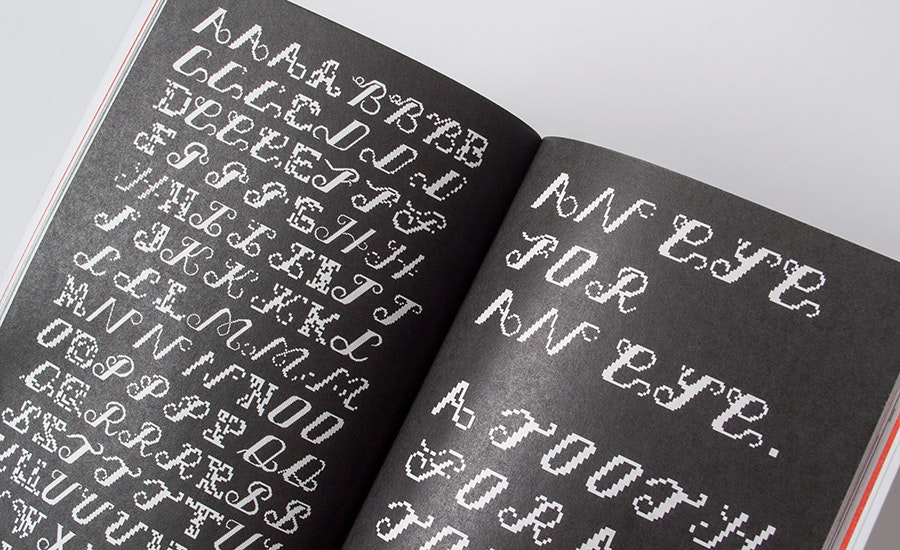 A A A A B B B B
C C C C D D D
D E E E E F F F
F G G G G H H H
H H I I I I J J
J J K K K K L
L L L M M M
M N N N N O O
O O P P P P Q Q
R R R R S S
S S T T T T U
U U U U
W X
AN eye
FOR
AN eye.
A TOOTH
FOR A